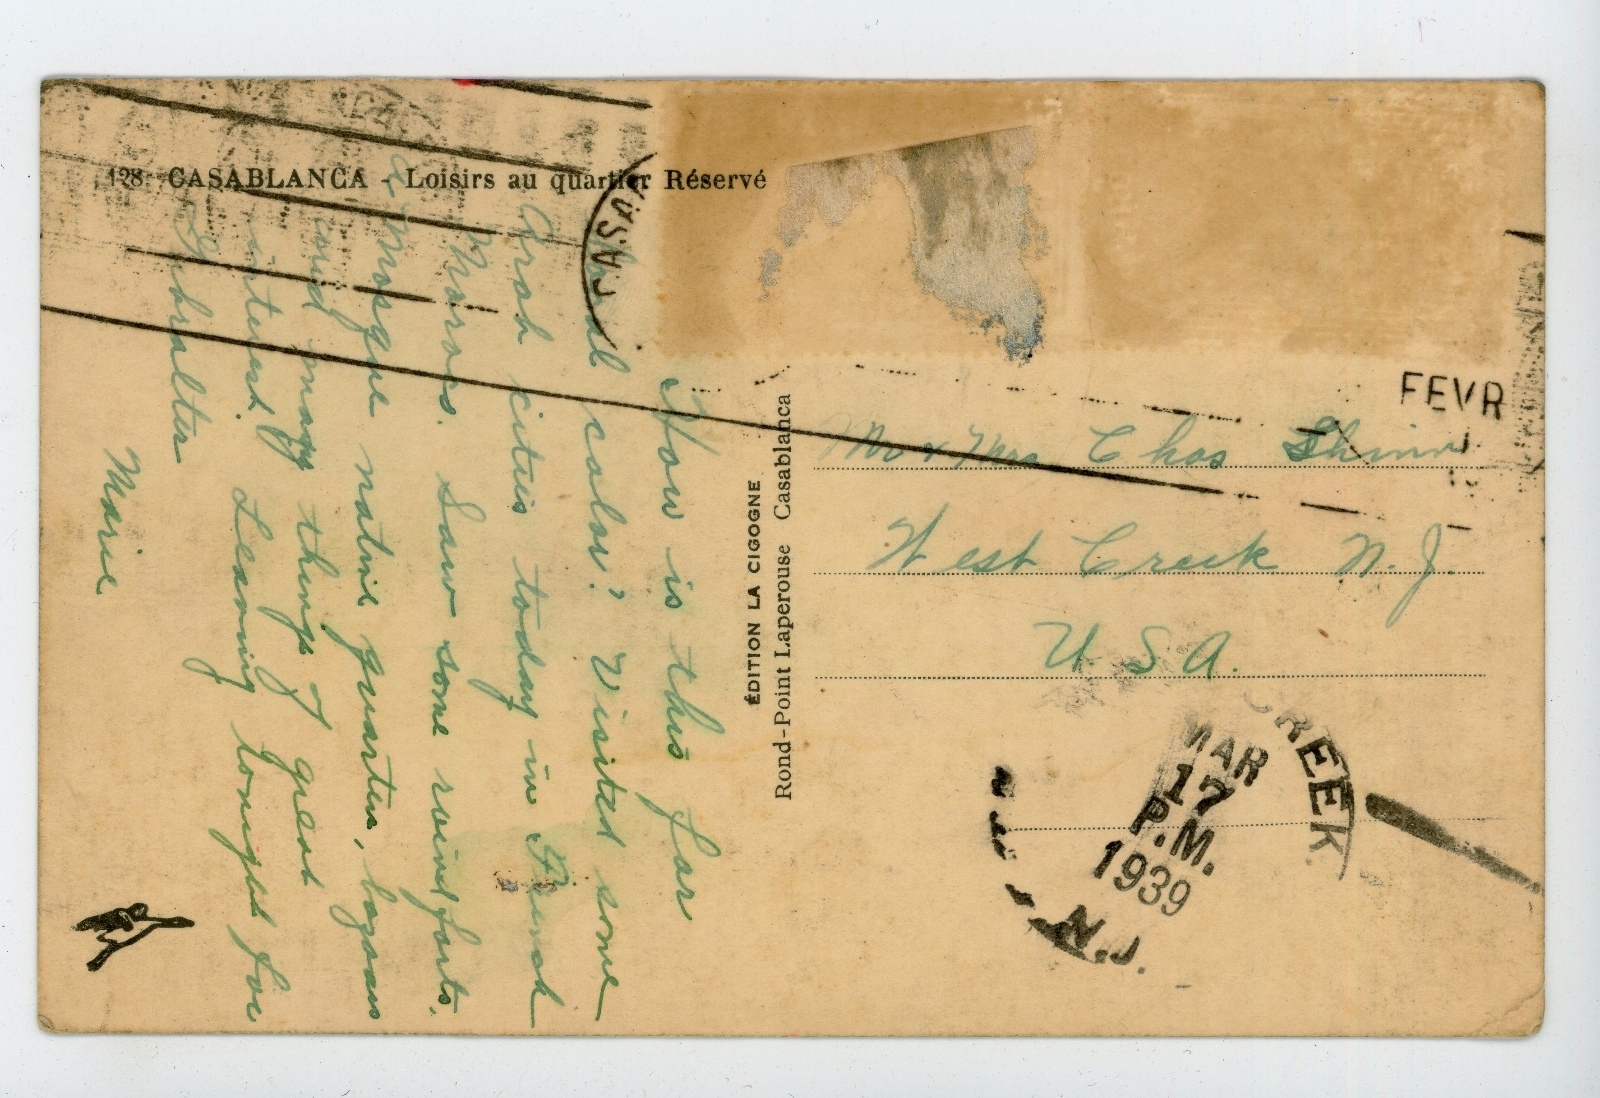 128 CASABLANCA - Loisirs au quartier Réservé
How is this for
local color? Visited some
Arab cities today in French
Morocco. Saw some ruins, forts,
a Mosque native quarters,
and many things of great
interest. Leaving tonight for
Gibralter
Marie
ÉDITION LA CIGOGNE
Rond-Point Laperouse Casablanca
CASA
FEVR
Mr & Mrs Chas Shinn
West Creek N.J.
U.S.A.
CREEK
MAR
17
P.M.
1939
N.J.